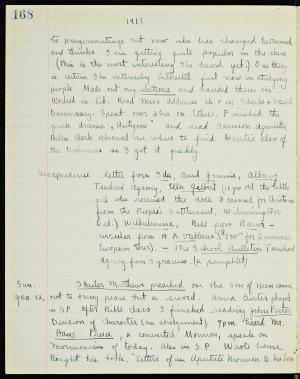 168
1913
to prayermeetings but now she has changed her mind
and thinks I am getting quite popular in the class
(This is the most interesting I've heard yet.) One thing
is certain I'm intensely interested just now in studying
people. Made out my elections and handed them in.
Worked in Lib. Read Miss Addams ch on Ideals & Social
Democracy. Spent over 2 hrs on Ethics. Finished the
greek drama, "Antigone" and read
Helen Clark showed me where to find Dante's plan of
the Universe so I got it quickly.
Correspondence Letter from Ida, Aunt Jennie, Albany
Teachers' Agency, Ella Gilbert (12 yrs old the little
girl who received the doll I dressed for Christmas
from the People's Settlement, Wilmington
Del.) Wilhelmina, Bill from
circular from H. A. ($900 for Summer
European tour). – The School Bulletin Teachers'
Agency from Syracuse. (a pamphlet)
Sun. Shailer Matthews preached on the Son of Man came
Jan. 12, not to bring peace but a sword. Anna Curtis played
in S.P. After Bible class I finished reading John Foster
Decision of Character (an abridgement) 7 P.M. heard Mr.
Hans Freece, a converted Mormon, speak on
Mormonism of today. Also in S.P. Wrote home
Bought his book. "Letters of an Apostate Mormon to his Son"